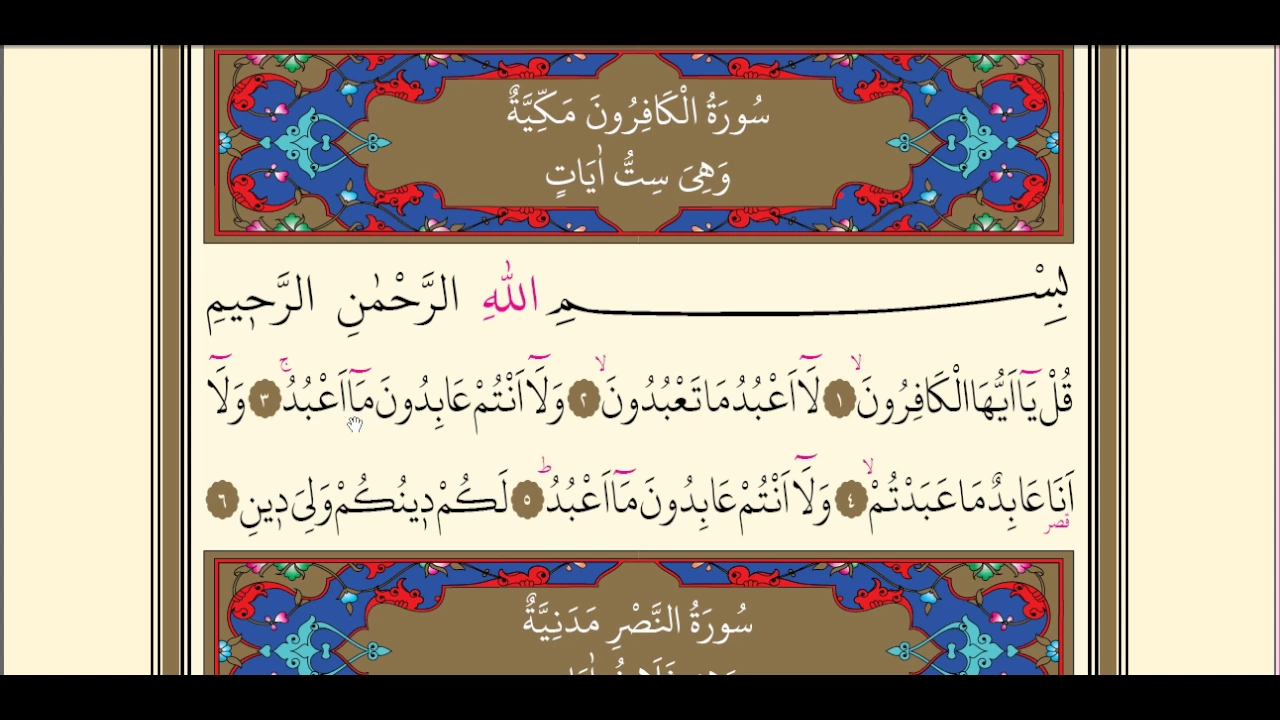 سُورَةُ الْكَافِرُونَ مَكِّيَّةٌ
وَهِىَ سِتُّ اٰيَاتٍ
بِسْمِ اللّٰهِ الرَّحْمٰنِ الرَّح۪يمِ
قُلْ يَٓا اَيُّهَا الْكَافِرُونَۙ ﴿١﴾ لَٓا اَعْبُدُ مَا تَعْبُدُونَۙ ﴿٢﴾ وَلَٓا اَنْتُمْ عَابِدُونَ مَٓا اَعْبُدُۚ ﴿٣﴾ وَلَٓا
اَنَا۬ عَابِدٌ مَا عَبَدْتُمْۙ ﴿٤﴾ وَلَٓا اَنْتُمْ عَابِدُونَ مَٓا اَعْبُدُۜ ﴿٥﴾ لَكُمْ د۪ينُكُمْ وَلِىَ د۪ينِ ﴿٦﴾
قصر
سُورَةُ النَّصْرِ مَدَنِيَّةٌ